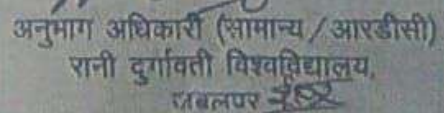 अनुभाग अधिकारी (सामान्य/आरडीसी)
रानी दुर्गावती विश्वविद्यालय,
जबलपुर